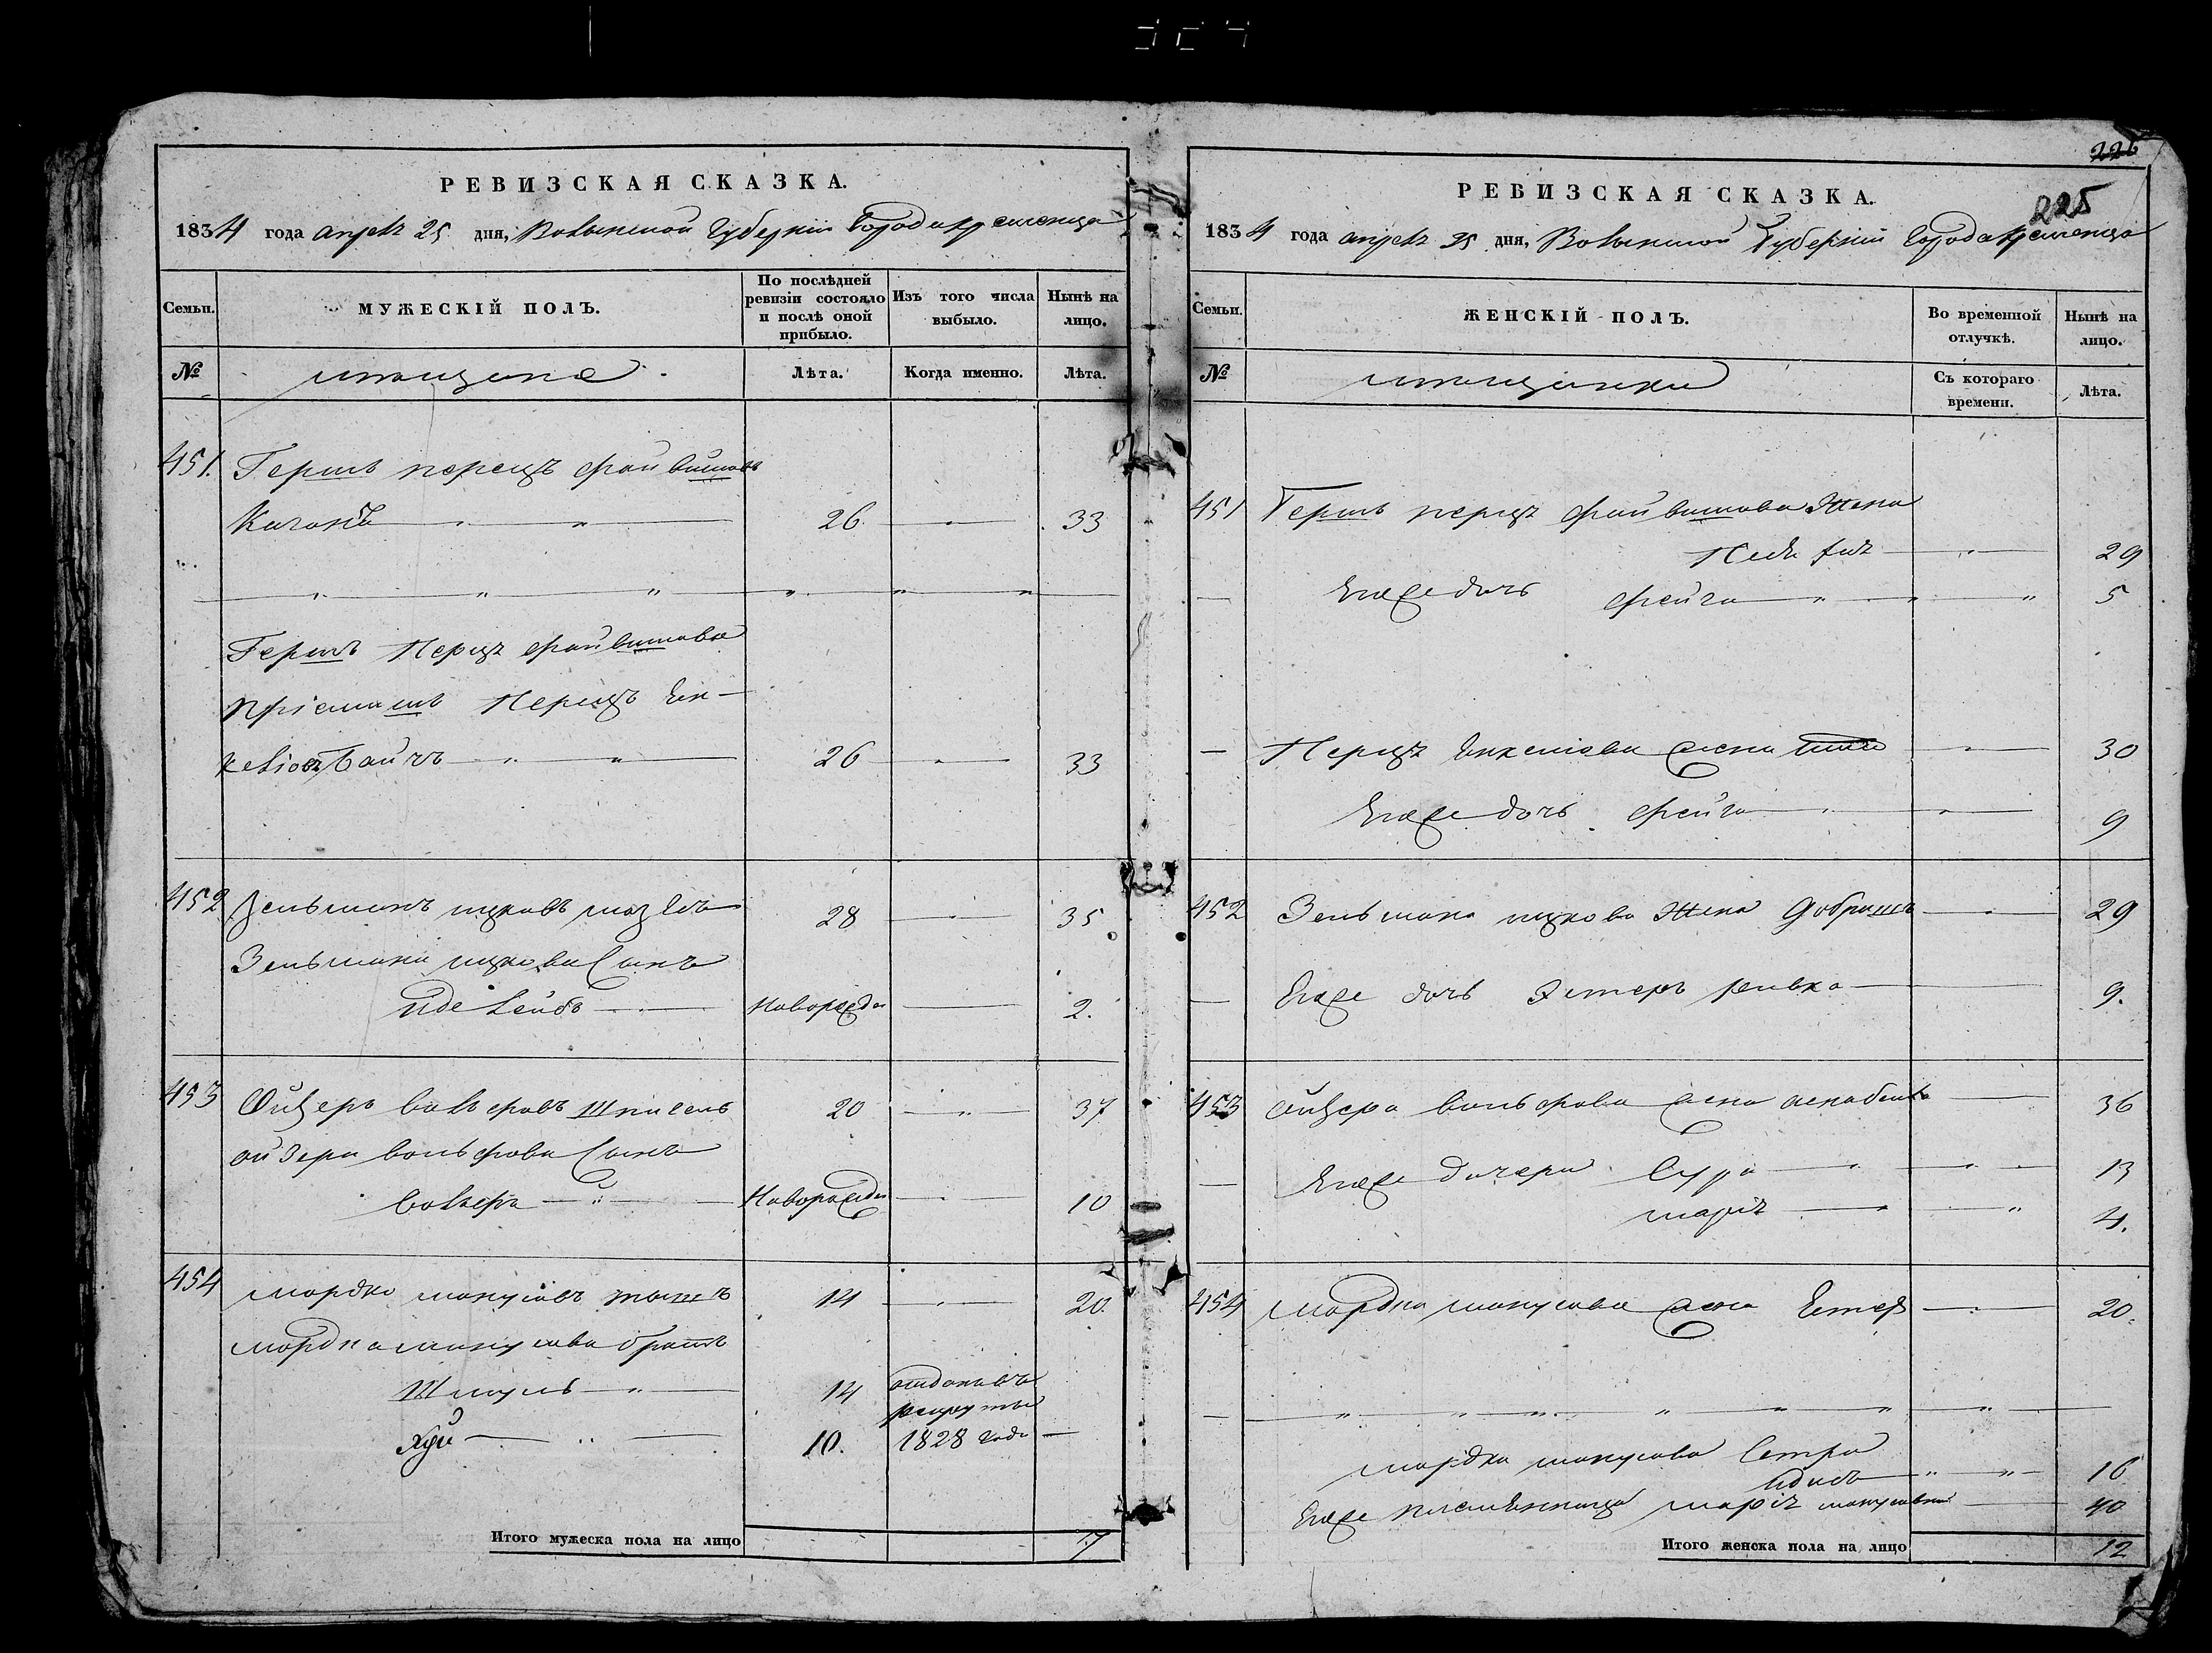 226
225
РЕВИЗСКАЯ СКАЗКА.
1834 года апрель 25 дня, Волынской Губернии Города Кременца
Семьи. МУЖЕСКІЙ ПОЛЪ. По послѣдней ревизіи состояло и послѣ оной прибыло. Изъ того числа выбыло. Нынѣ на лицо.
№ мещане Лѣта. Когда именно. Лѣта.
451. Герш перецъ файвишовъ
Каганъ 26 33
Гершъ Перцъ файвишова
Пріемышъ Перецъ
26 33
452 Зельманъ ицковъ 28 35
Зельмана ицкова Сынъ
Иде Лейбъ Новорожды 2.
453 Ойзеръ вольфовъ Шпигель 20 37
ойзера вольфова Сынъ
Новорожды 10
454 мордко манусовъ 14 20.
мордка манусова братъ
Шмуль 14 отданъ въ рекруты
10. 1828 года
Итого мужеска пола на лицо 7
РЕВИЗСКАЯ СКАЗКА.
1834 года апрель 25 дня, Волынской Губернии Города Кременца
Семьи. ЖЕНСКІЙ ПОЛЪ. Во временной отлучкѣ. Нынѣ на лицо.
№ мещанки Съ котораго времени. Лѣта.
451 Герш перца файвишова Жена
29
Егоже дочь фейга 5
Перца жена 30
Егоже дочь фейга 9
452 Зельмана ицкова Жена Добришъ 29
Егоже дочь Эстеръ ривка 9.
453 ойзера вольфова жена 36
Егоже дочери Сура 13
4.
454 мордка манусова жена Естер 20.
мордка манусова Сестра
16
Егоже племенница 40
Итого женска пола на лицо 12